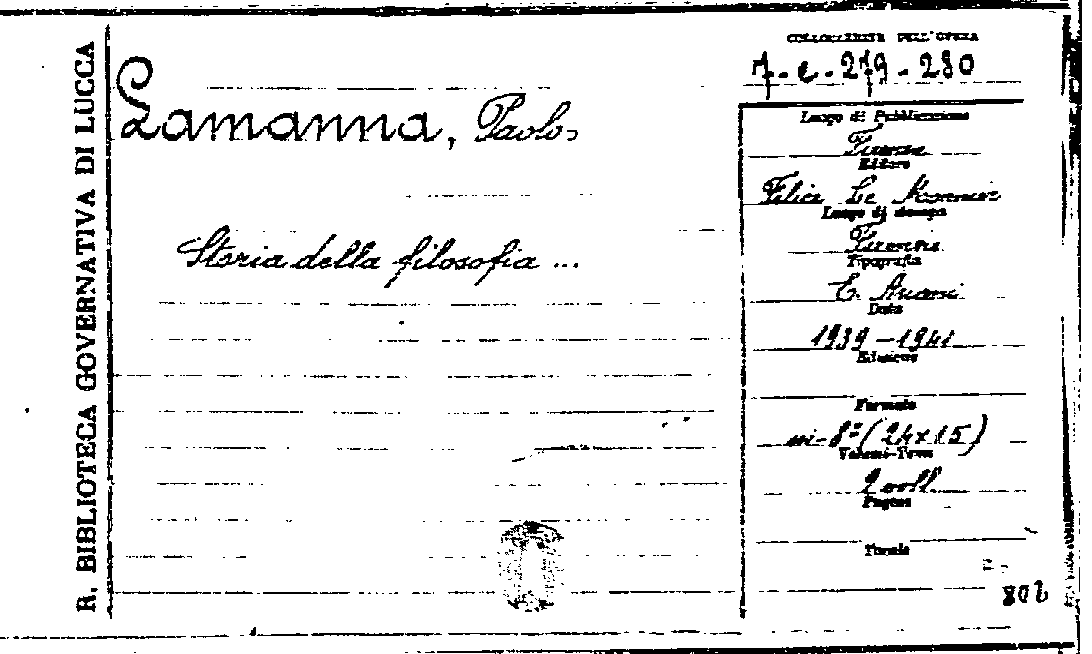 R. BIBLIOTECA GOVERNATIVA DI LUCCA
Lamanna, Paolo
Storia della filosofia ...
COLLOCAZIONE DELL'OPERA
7-e-279-280
Luogo di Pubblicazione
Firenze
Editore
Felice Le Monnier
Luogo di stampa
Firenze
Tipografia
E. Ariani
Data
1939-1941
Edizione
Formato
in-8º (24x15)
Volumi-Tomi
2 voll
Pagine
Tavole